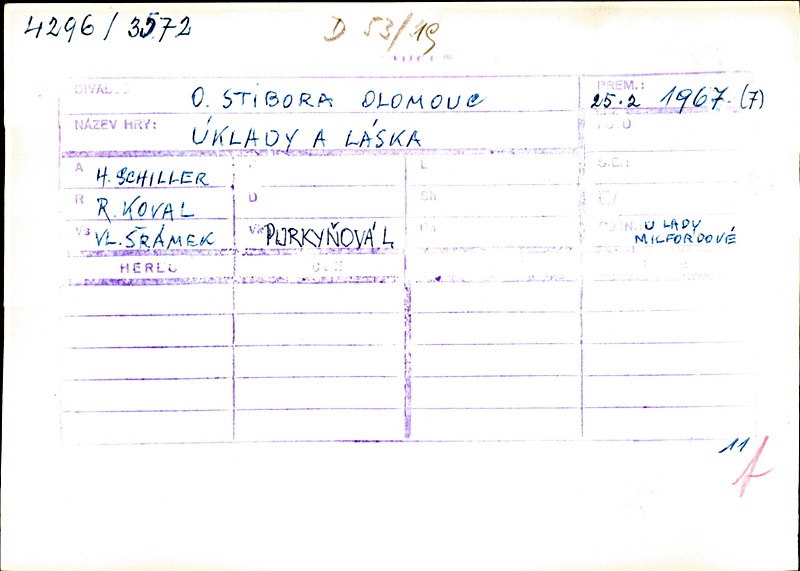 4296/3572
D 53/19
DIVADLO O. STIBORA OLOMOUC
PREM.: 25.2 1967. (7)
NÁZEV HRY: ÚKLADY A LÁSKA
FOTO
A H. SCHILLER
L
R R. KOVAL
D
Sh
Vs VL. ŠRÁMEK
PURKYŇOVÁ L
U LADY
MILFORDOVÉ
HEREC
11